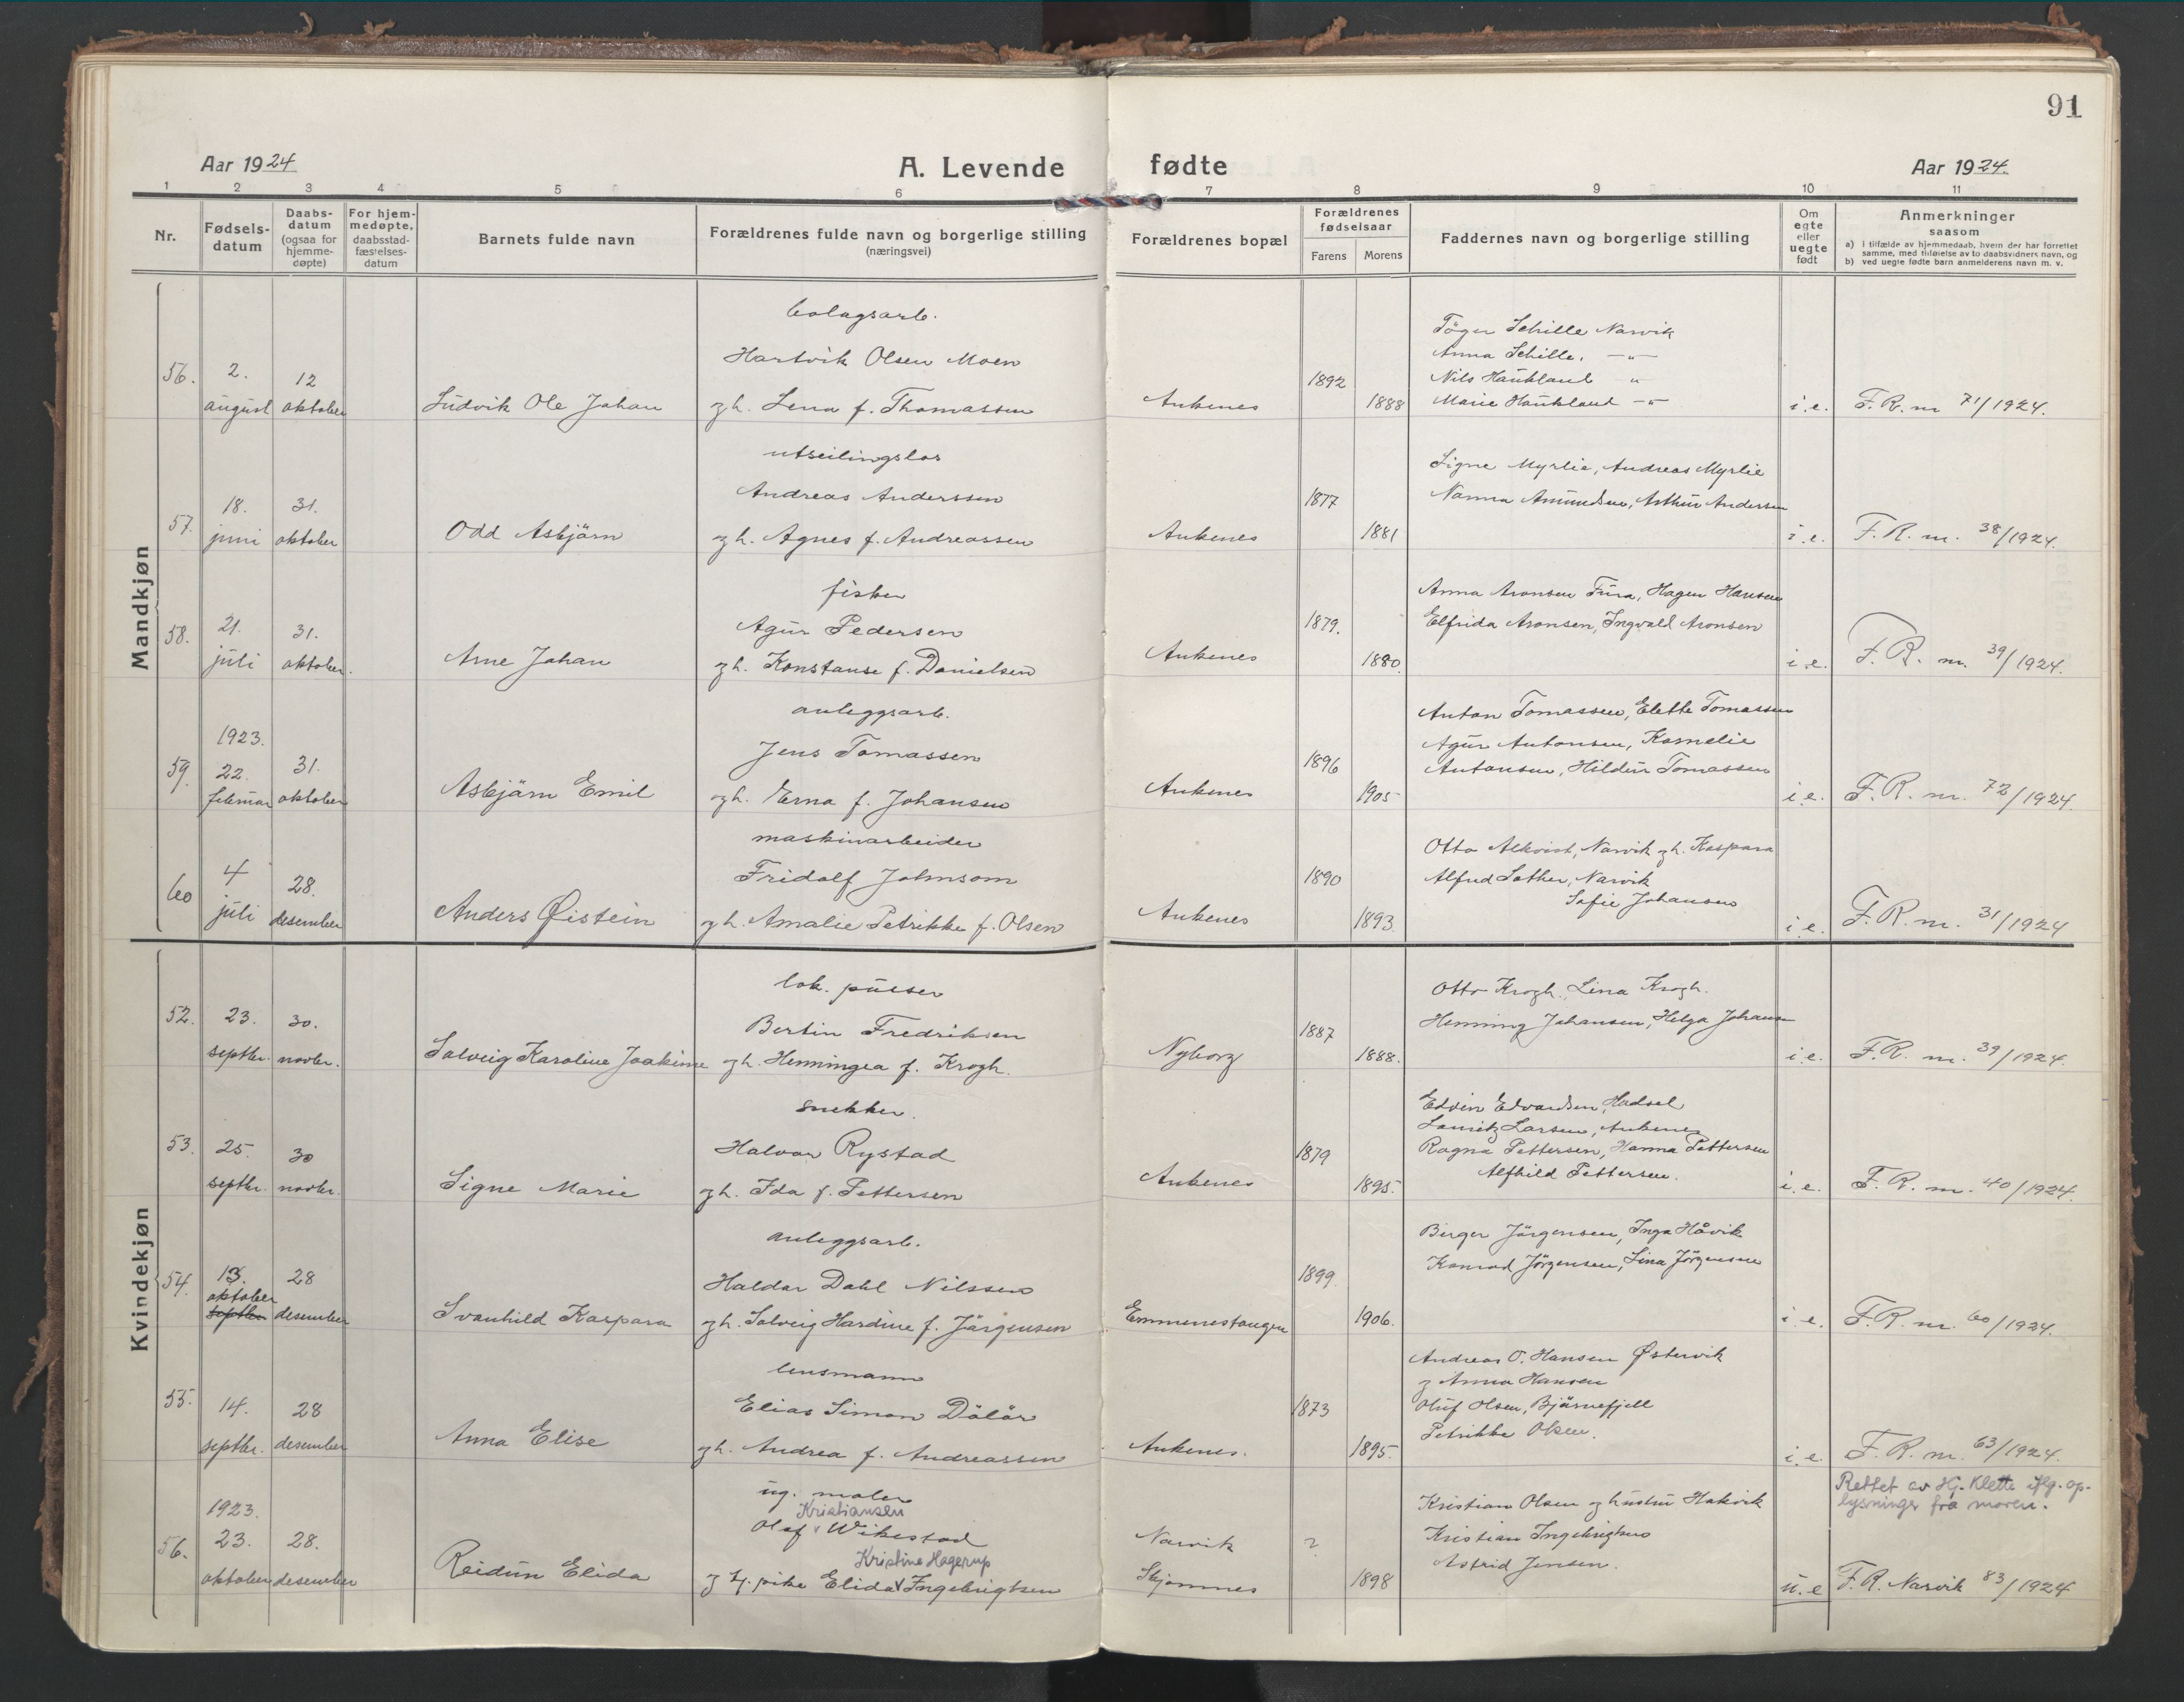 91
Aar 1924
A. Levende fødte
Aar 1924.
1 2 3 4 5 6 7 8 9 10 11
Nr.
Fødsels-
datum
Daabs-
datum
(ogsaa for
hjemme-
døpte)
For hjem-
medøpte,
daabsstad-
fæstelses-
datum
Barnets fulde navn
Forældrenes fulde navn og borgerlige stilling
(næringsvei)
Forældrenes bopæl
Forældrenes
fødselsaar
Farens Morens
Faddernes navn og borgerlige stilling
Om
egte
eller
uegte
født
Anmerkninger
saasom
a) i tilfælde av hjemmedaab, hvem der har forrettet
samme, med tilføielse av to daabsvidners navn, og
b) ved uegte fødte barn anmelderens navn m. v.
Mandkjøn
56.
2.
august
12
oktober
Ludvik Ole Johan
bolagsarb.
Hartvik Olsen Moen
g h. Lena f. Thomassen
Ankenes
1892
1888
Schille Narvik
Anna Schille, —"—
Nils Haukland "
Marie Haukland —"—
i.e.
F.R. nr 71/1924.
57.
18.
juni
31.
oktober
Odd Asbjörn
utseilingslos
Andreas Anderssen
g h. Agnes f. Andreassen
Ankenes
1877
1881
Signe Myrlie, Andreas Myrlie
Nanna Amundsen, Arthur Andersen
i.e.
F.R. nr. 38/1924.
58.
21.
juli
31.
oktober.
Arne Johan
fisker
Agur Pedersen
g h. Konstanse f. Danielsen
Ankenes
1879.
1880.
Anna Aronsen Fura, Hagen Hansen
Elfrida Aronsen, Ingvald Aronsen
i.e.
F.R. nr. 39/1924.
59.
1923.
22.
februar
31.
oktober
Asbjörn Emil
anleggsarb.
Jens Tomassen
g h. Erna f. Johansen
Ankenes
1896
1905
Anton Tomassen, Elette Tomassen
Agur Antonsen, Kornelie
Antonsen, Hildur Tomassen
i.e.
F.R. nr. 72/1924.
60
4
juli
28.
desember
Anders Øistein
maskinarbeider
Fridolf Johnsom
g h. Amalie Petrikke f. Olsen
Ankenes
1890
1893.
Otto Alkvist, Narvik g h. Kaspara
Alfred Sather, Narvik
Sofie Johansen
i.e.
F.R. nr. 31/1924
Kvindekjøn
52.
23.
septbr.
30.
novbr.
Solveig Karoline Joakime
lok. pusser
Bertin Fredriksen
g h. Henningea f. Krogh.
Nyborg
1887
1888.
Otto Krogh, Lina Krogh.
Henning Johansen, Helga Johansen
i.e.
F.R. nr. 39/1924.
53.
25.
septbr.
30
novbr.
Signe Marie
snekker.
Halvor Rystad
g h. Ida f. Pettersen
Ankenes
1879
1895.
Edvin Edvardsen, Hadsel
Lauritz Larsen, Ankenes
Ragna Pettersen, Hanna Pettersen
Alfhild Pettersen.
i.e.
F.R. nr. 40/1924.
54.
13.
oktober
septbr
28
desember
Svanhild Kaspara
anleggsarb.
Haldor Dahl Nilssen
g h. Solveig Hardine f. Jörgensen
Emmenestangen
1899.
1906.
Birger Jörgensen, Inga Håvik
Konrad Jörgensen, Lina Jörgensen
i.e.
F.R. nr. 60/1924.
55.
14.
septbr.
28
desember
Anna Elise
lensmann
Elias Simon Dölör
g h. Andrea f. Andreassen
Ankenes.
1873
1895.
Andreas O. Hansen Østervik
g Anna Hansen
Oluf Olsen, Bjørnefjell
Petrikke Olsen.
i.e.
F.R. nr. 63/1924.
56.
1923.
23.
oktober
28.
desember
Reidun Elida
ug. maler
Kristiansen
Olaf v Wikestad
Kristine Hagerup
g Hj. pike Elida v Ingebrigtsen
Narvik
Skjomnes
?
1898
Kristian Olsen og hustru Hakvik
Kristian Ingebrigtsen
Astrid Jensen.
u.e
Rettet av Hj. Klette iflg. op-
lysninger fra moren.
F.R. Narvik 83/1924